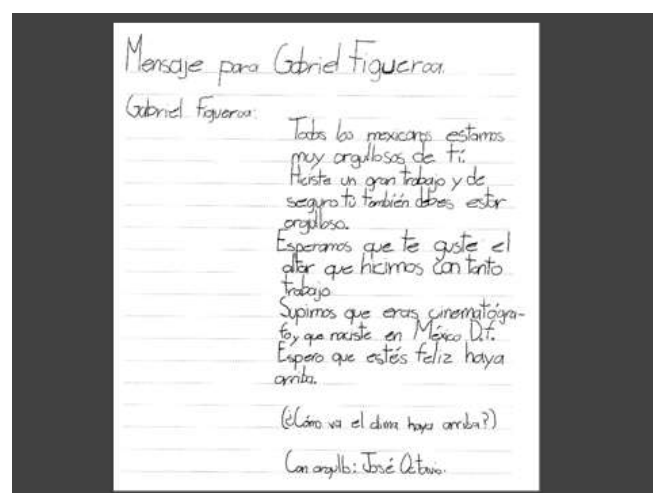 Mensaje para Gabriel Figueroa.
Gabriel Figueroa:
Todos los mexicanos estamos
muy orgullosos de tí.
Hiciste un gran trabajo y de
seguro tú también debes estar
orgulloso.
Esperamos que te guste el
altar que hicimos con tanto
trabajo
Supimos que eras cinematógra-
fo, y que naciste en México D.f.
Espero que estés feliz haya
arriba.
(¿Cómo va el clima haya arriba?)
Con orgullo: José Octavio.